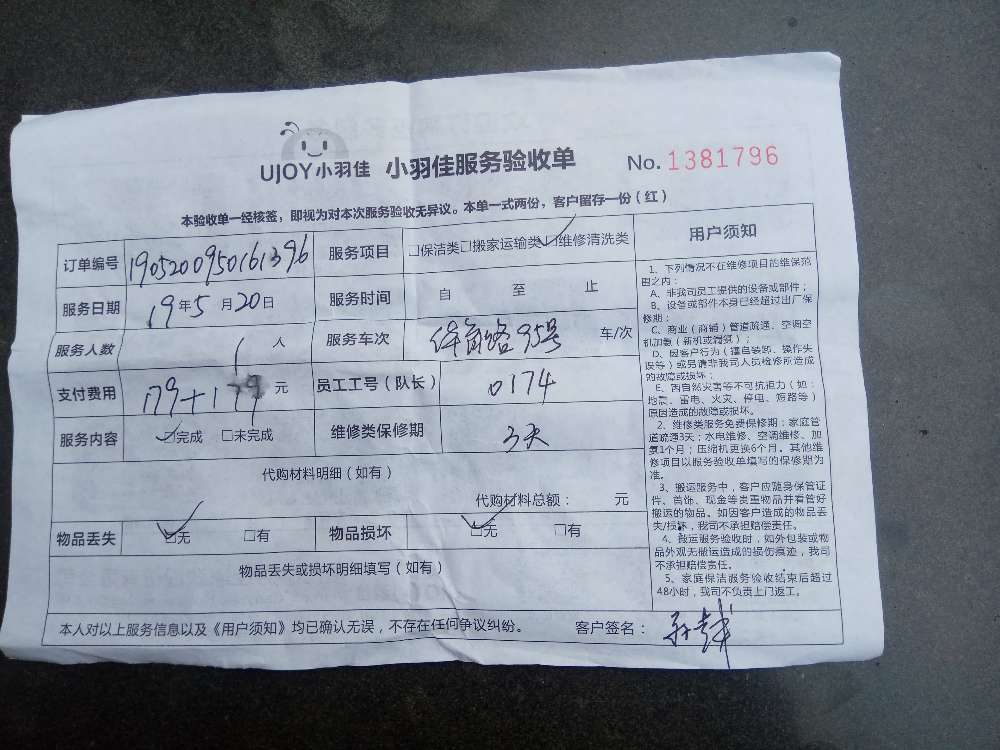 UJOY小羽佳 小羽佳服务验收单 No. 1381796
本验收单一经核签，即视为对本次服务验收无异议。本单一式两份，客户留存一份（红）
订单编号 1905200950161396 服务项目 □保洁类□搬家运输类☑维修清洗类
服务日期 19年5月20日 服务时间 自 至 止
服务人数 1人 服务车次 95号 车/次
支付费用 179+179元 员工工号（队长） 0174
服务内容 ☑完成 □未完成 维修类保修期 3天
代购材料明细（如有）
代购材料总额： 元
物品丢失 ☑无 □有 物品损坏 ☑无 □有
物品丢失或损坏明细填写（如有）
用户须知
1、下列情况不在维修项目的维保范
围之内：
A、非我司员工提供的设备或部件；
B、设备或部件本身已经超过出厂保
修期；
C、商业（商铺）管道疏通、空调空
机加氨（新机或漏氨）；
D、因客户行为（擅自装卸、操作失
误等）或另请非我司人员检修所造成
的故障或损坏；
E、因自然灾害等不可抗拒力（如：
地震、雷电、火灾、停电、短路等）
原因造成的故障或损坏。
2、维修类服务免费保修期：家庭管
道疏通3天；水电维修、空调维修、加
氨1个月；压缩机更换6个月。其他维
修项目以服务验收单填写的保修期为
准。
3、搬运服务中，客户应随身保管证
件、首饰、现金等贵重物品并看管好
搬运的物品。如因客户造成的物品丢
失/损坏，我司不承担赔偿责任。
4、搬运服务验收时，如外包装或物
品外观无搬运造成的损伤痕迹，我司
不承担赔偿责任。
5、家庭保洁服务验收结束后超过
48小时，我司不负责上门返工。
本人对以上服务信息以及《用户须知》均已确认无误，不存在任何争议纠纷。 客户签名：